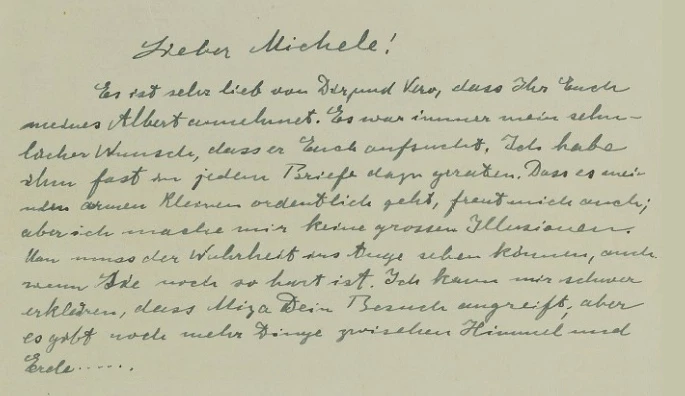 Lieber Michele!
Es ist sehr lieb von Dir, und Vero, dass Ihr Euch
meines Albert annehmet. Es war immer mein sehn-
licher Wunsch, dass er Euch aufsucht. Ich habe
ihm fast in jedem Briefe dazu geraten. Dass es mei-
nem armen Kleinen ordentlich geht, freut mich auch;
aber ich mache mir keine grossen Illusionen.
Man muss der Wahrheit ins Auge sehen können, auch
wenn Sie noch so hart ist. Ich kann mir schwer
erklären, dass Miza Dein Besuch angreift, aber
es gibt noch mehr Dinge zwischen Himmel und
Erde......